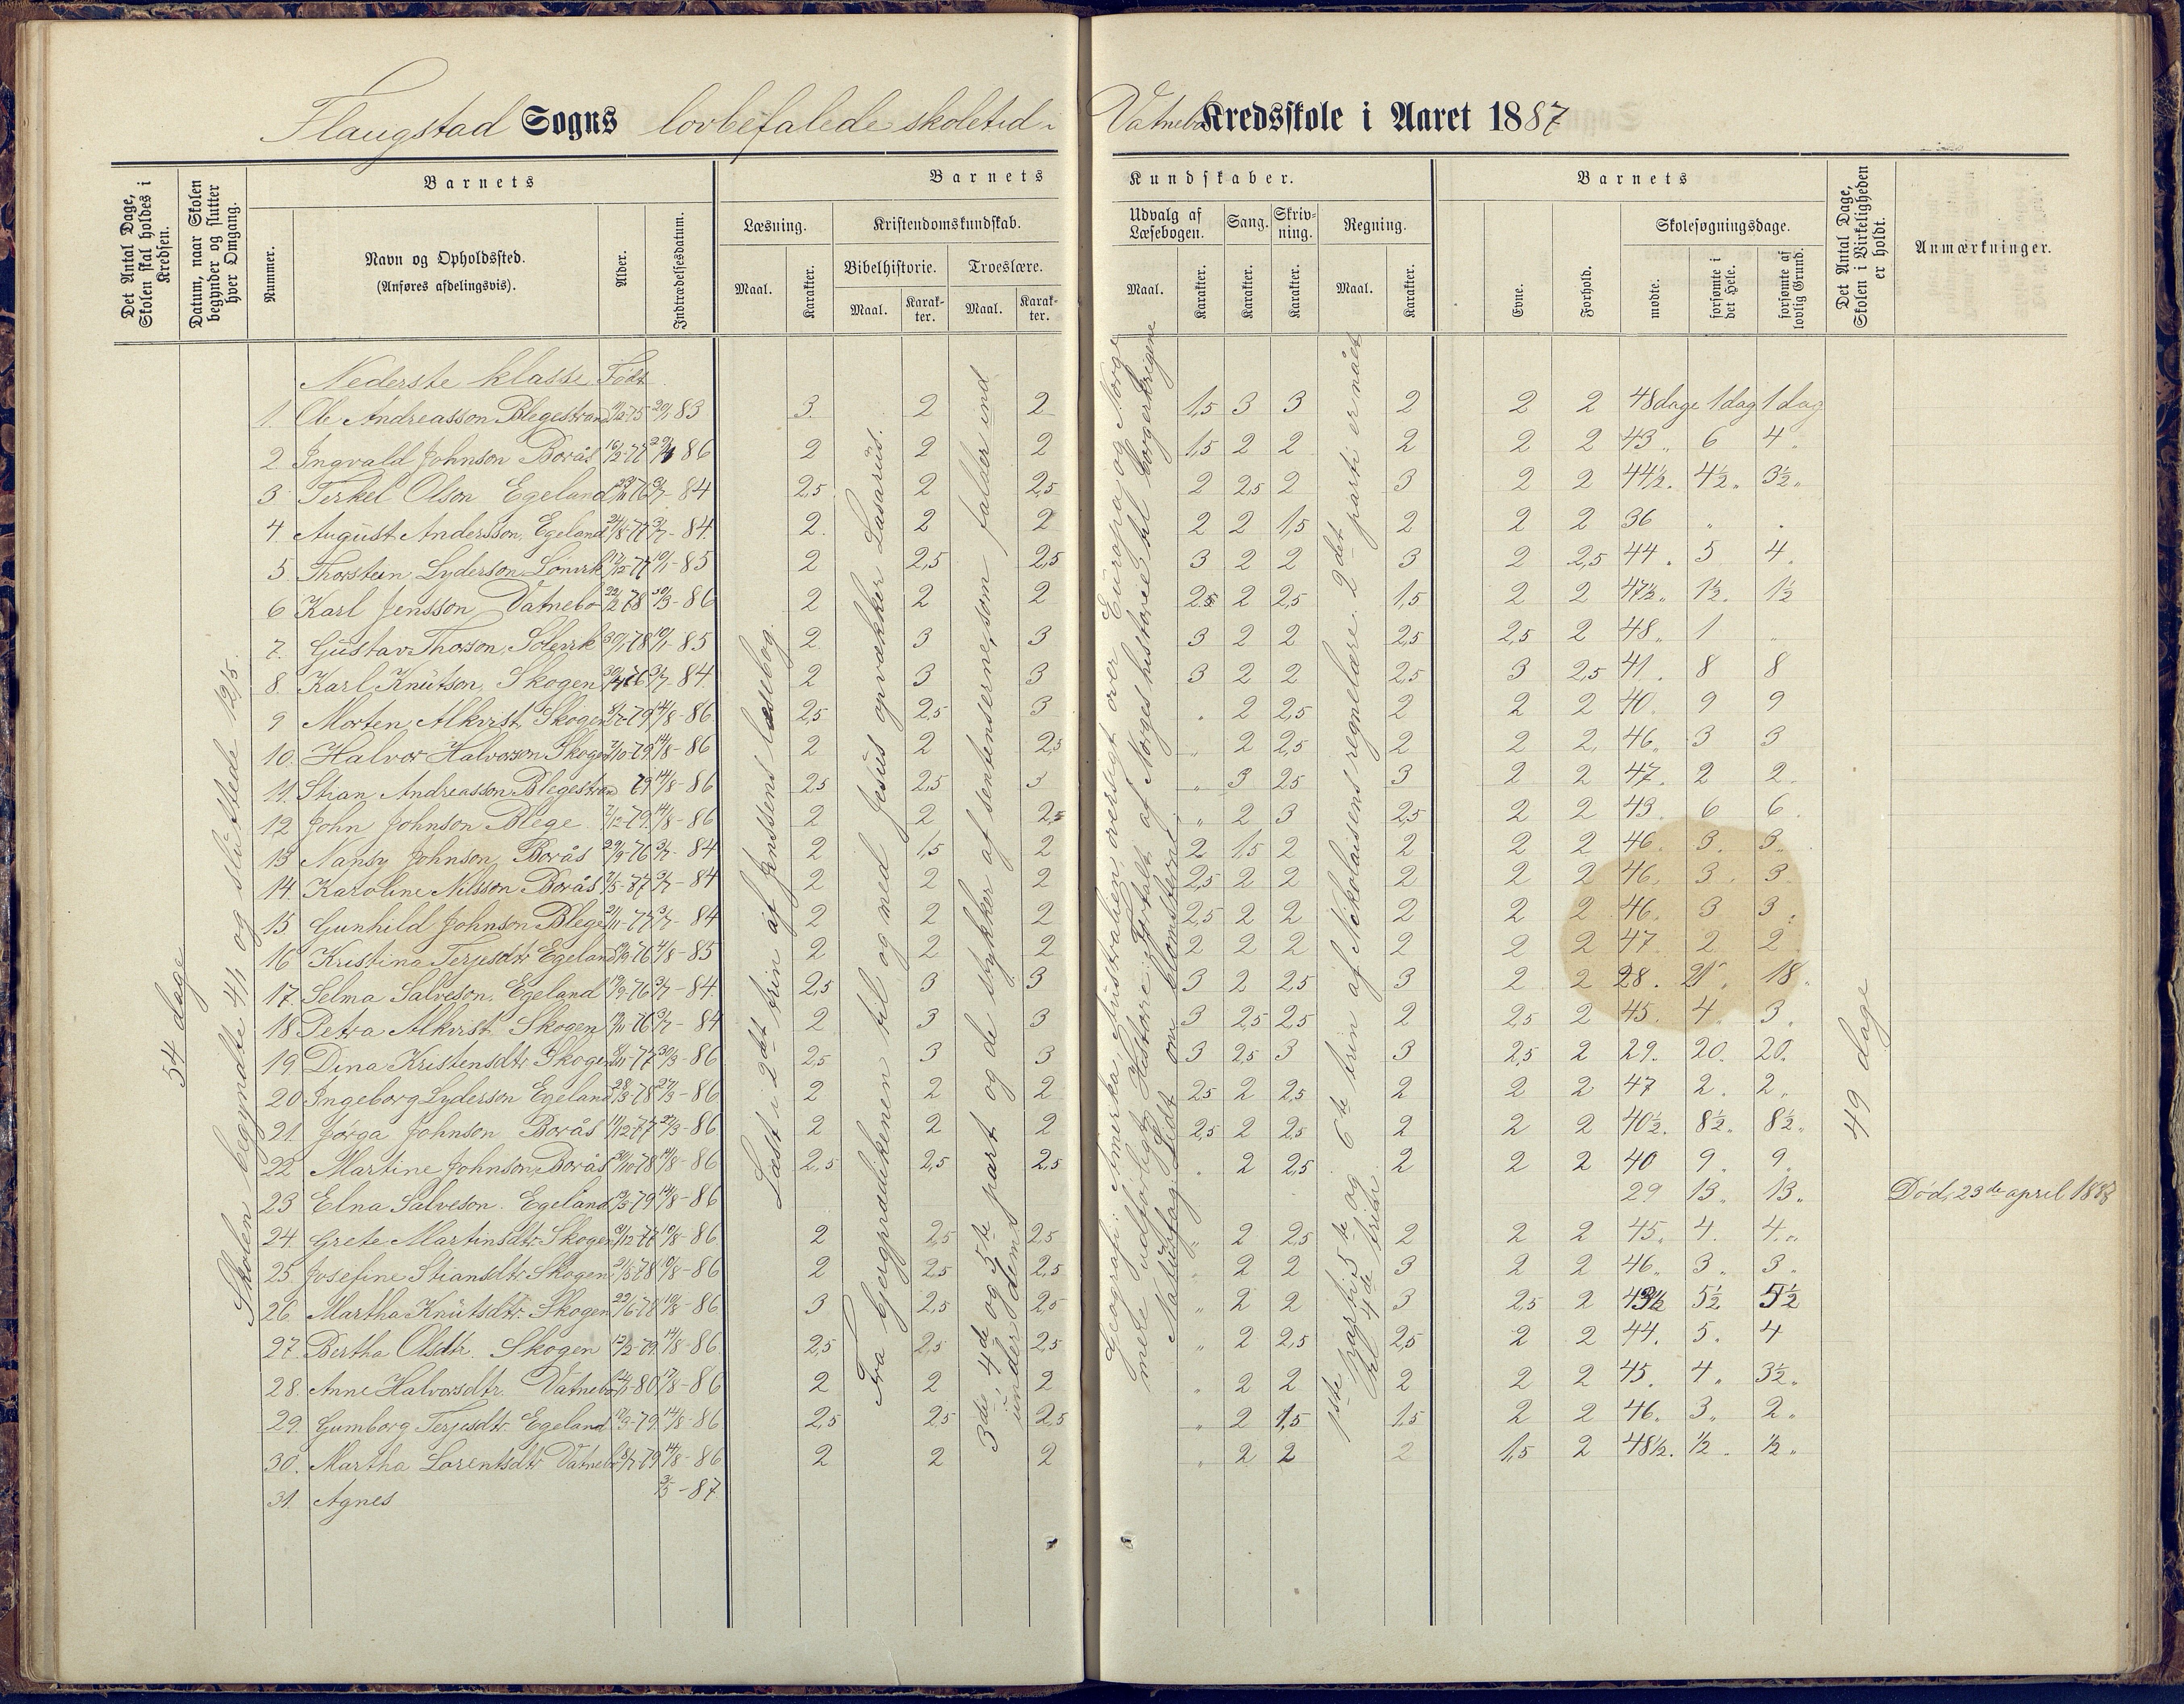 Flaugstad Sogns lovbefalede skoletid i Vatnebo Kredsskole i Aaret 1887
Det Antal Dage, Skolen skal holdes i Kredsen.
Datum, naar Skolen begynder og slutter hver Omgang.
Barnets
Nummer.
Navn og Opholdssted.
(Anføres afdelingsvis).
Alder.
Indtrædelsesdatum.
Barnets Kundskaber.
Læsning.
Maal.
Karakter.
Kristendomskundskab.
Bibelhistorie.
Maal.
Karak-ter.
Troeslære.
Maal.
Karak-ter.
Udvalg af Læsebogen.
Maal.
Karakter.
Sang.
Karakter.
Skriv-ning.
Karakter.
Regning.
Maal.
Karakter.
Barnets
Evne.
Forhold.
Skolesøgningsdage.
mødte.
forsømte i det Hele.
forsømte af lovlig Grund.
Det Antal Dage, Skolen i Virkeligheden er holdt.
Anmærkninger.
54 dage
Skolen begyndte 4/1 og sluttede 12/5.
Læst i 2det trin af Jenssens læsebog.
til og med Jesus opvækker Lasarus.
3de, 4de og 5te part og de stykker af sentenserne, som falder ind under dem
Geografi: Amerika, Australien, oversigt over Europa og Norge
mere udførligt. Historie: Fortalt af Norges historie til borgerkrigene
Naturfag: Lidt om blomsterne.
1ste parti 5te og 6te trin af Nickolaisens regnelære. 2det parti er nået til 4de trin.
49 dage
Nederste klasse. Født
1. Ole Andreasson Blegestrand 75 20/1 83 3 2 2 1,5 3 3 2 2 2 48 dage 1 dag 1 dag
2 Ingvald Johnson Borås 16/2-77 86 2 2 2 1,5 2 2 2 2 2 43 „ 6 4 „
3 Terkel Olson Egeland 76 3/7-84 2,5 2 2,5 2 2,5 2 3 2 2 44½. 4½ „ 3½ „
4 August Andersson, Egeland 24/8-77 3/7-84. 2. 2 2 2 2 1,5 2 2 2 36 „ .
5. Thorstein Lyderson 77 10/1-85 2 2,5 2,5 3 2 2 3 2 2,5 44 . 5 4.
6 Karl Jensson Vatnebo 22/2 78 30/3-86 2 2 2 2,5 2 2,5 1,5 2 2 47½ „ 1½. 1½
7. Gustav Thorson, 30/1-78 10/1-85 2. 3 3 3 2 2 2,5 2,5 2 48 „ 1 „
8. Karl Knutson, Skogen 76 3/7-84. 2 3 3 3 2 2 2,5 3 2,5 41. 8 8
9 Morten Alkvist, Skogen 79 14/8-86. 2,5 2,5 3 . 2 2,5 2 2 2 40. 9 9
10. Halvor Halvorson Skogen 7/10-79 14/8-86 2 2 2,5 „ 2 2,5 2 2 2, 46 „ 3 3
11. Stian Andreasson Blegestrand 79 14/8-86 2,5 2,5 3 „ 3 2,5 3 2 2 47. 2 2.
12 John Johnson Blege 7/12-79 14/8-86 2 2 2,5 „ 2 3 2,5 2 2 43. 6 6.
13 Nansy Johnson, Borås 29/9-76 3/7-84 2 1,5 2 2 1,5 2 2 2 2 46. 3. 3.
14. Karoline Nilsson Borås 77 3/7-84 2 2 2 2,5 2 2 2 2 2 46. 3. 3
15 Gunhild Johnson Blege 21/11-77 3/7-84 2 2 2 2,5 2 2 2 2 2 46. 3 3.
16 Kristina Terjesdtr Egeland 76 4/8-85 2 2 2 2 2 2 2 2 2 47. 2 2
17. Selma Salveson, Egeland 19/9-76 3/7-84. 2,5 3 3 3 2 2,5 3 2 2 28. 21 „ 18.
18 Petra Alkvist Skogen 76 3/7-84 2 3 3 3 2,5 2,5 2 2,5 2 45. 4. 3.
19 Dina Kristensdtr Skogen 77 30/3-86 2,5 3 3 3 2,5 3 3 2,5 2 29. 20. 20.
20 Ingeborg Lyderson Egeland 28/3-78 27/3-86 2 2 2 2,5 2 2,5 2 2 2 47 2. 2 „
21. Jórga Johnson Borås 11/12 77 22/3-86 2 2 2 2,5 2 2,5 2 2 2 40½. 8½ „ 8½ „
22 Martine Johnson, Borås 78 14/8-86 2,5 2,5 2,5 . 2 2,5 2 2 2 40 9 „ 9 „
23 Elna Salveson. Egeland 79 14/8-86 29 13 „ 13 „ Død, 23de april 1888
24. Grete Martinsdtr. Skogen 77 10/8-86 2 2,5 2,5 „ 2 2,5 2 2 2 45 „ 4. 4 „
25. Josefine Stiansdtr Skogen 21/5 78 10/8-86 2 2,5 2,5 „ 2 2 3 2 2 46 „ 3 „ 3 „
26. Martha Knutsdtr. Skogen 22/6-78 10/8-86 3 2,5 2,5 „ 2 2 3 2,5 2 43½ 5½ 5½
27. Bertha Olsdtr. Skogen 12/2-79 14/8-86. 2,5 2,5 2,5 „ 2 2,5 2,5 2 2 44. 5. 4
28. Anne Halvorsdtr. Vatnebo 80 17/8-86 2 2 2 „ 2 2 2 2 2 45. 4 „ 3½ „
29. Gumborg Terjesdtr. Egeland 17/3-79 14/8-86 2,5 2,5 2,5 „ 2 1,5 1,5 2 2 46 „ 3 „ 2 „
30. Martha Lorentsdtr Vatnebo 79 14/8-86 2 2 2 „ 2 2 2 1,5 2 48½. ½ „ ½ „
31. Agnes 3/5-87.